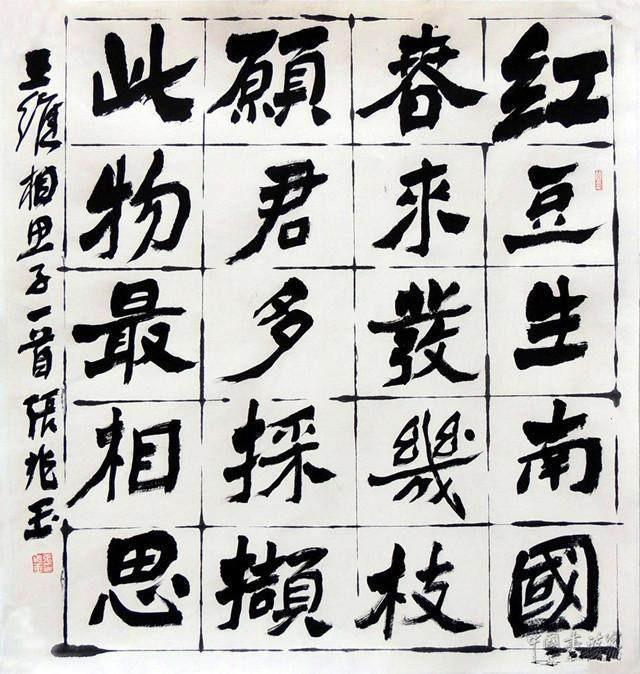 紅豆生南國
春來發幾枝
願君多採擷
此物最相思
王維相思子一首張兆玉